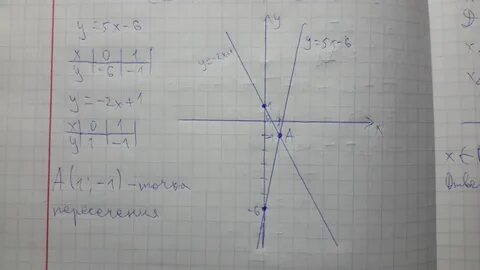 y=5x-6
x | 0 | 1
y | -6 | -1
y=-2x+1
x | 0 | 1
y | 1 | -1
A(1;-1)-точка
пересечения
y
y=-2x+1
y=5x-6
1
1
-1
A
x
-6
D
x
x
x∈
Ответ